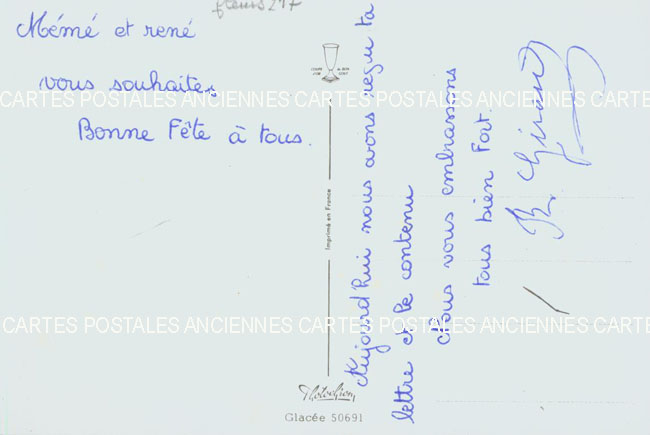 fleurs 217
Mémé et rené
vous souhaites
Bonne Fête à tous.
COUPE D'OR DU BON GOUT
Imprimé en France
Photochrom
Glacée 50691
Aujourd'hui nous avons reçu ta
lettre et le contenu
Nous vous embrassons
tous bien Fort.
R. Girard
CARTES POSTALES ANCIENNES CARTES POSTALES ANCIENNES CARTES
CARTES POSTALES ANCIENNES CARTES POSTALES ANCIENNES CARTES